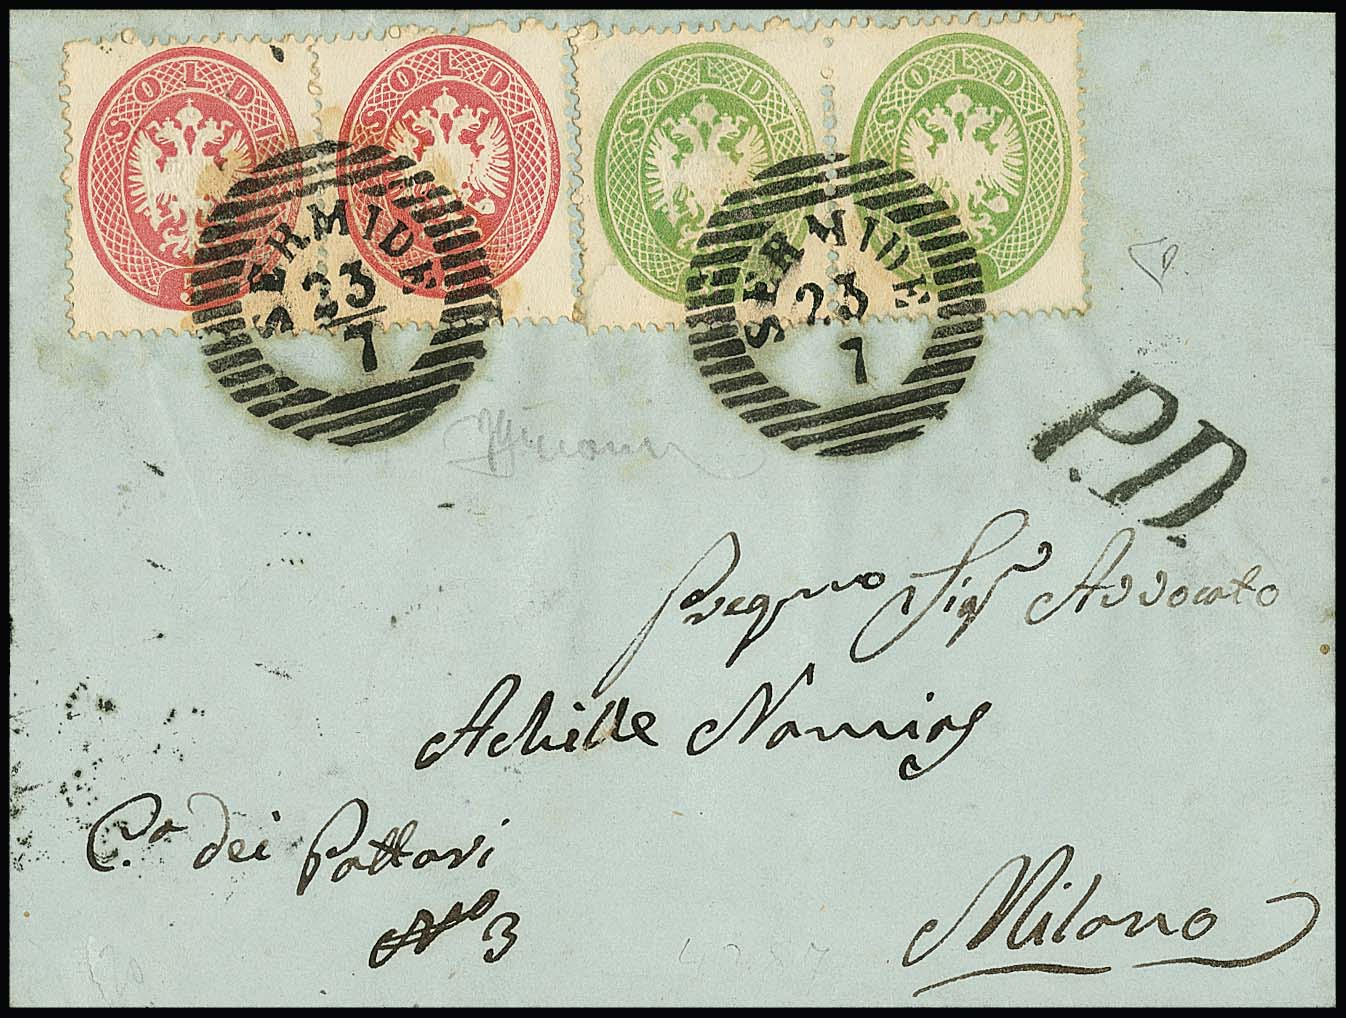 SOLDI SOLDI SOLDI SOLDI
SERMIDE SERMIDE
23 23
7 7
P.D.
Pregmo Sigr Avvocato
Achille Namias
Ca dei Pattari
No 3
Milano